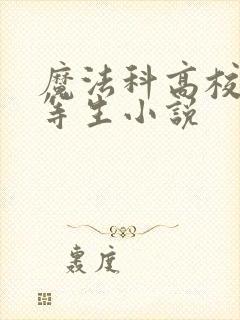 魔法科高校
等生小説
轰度